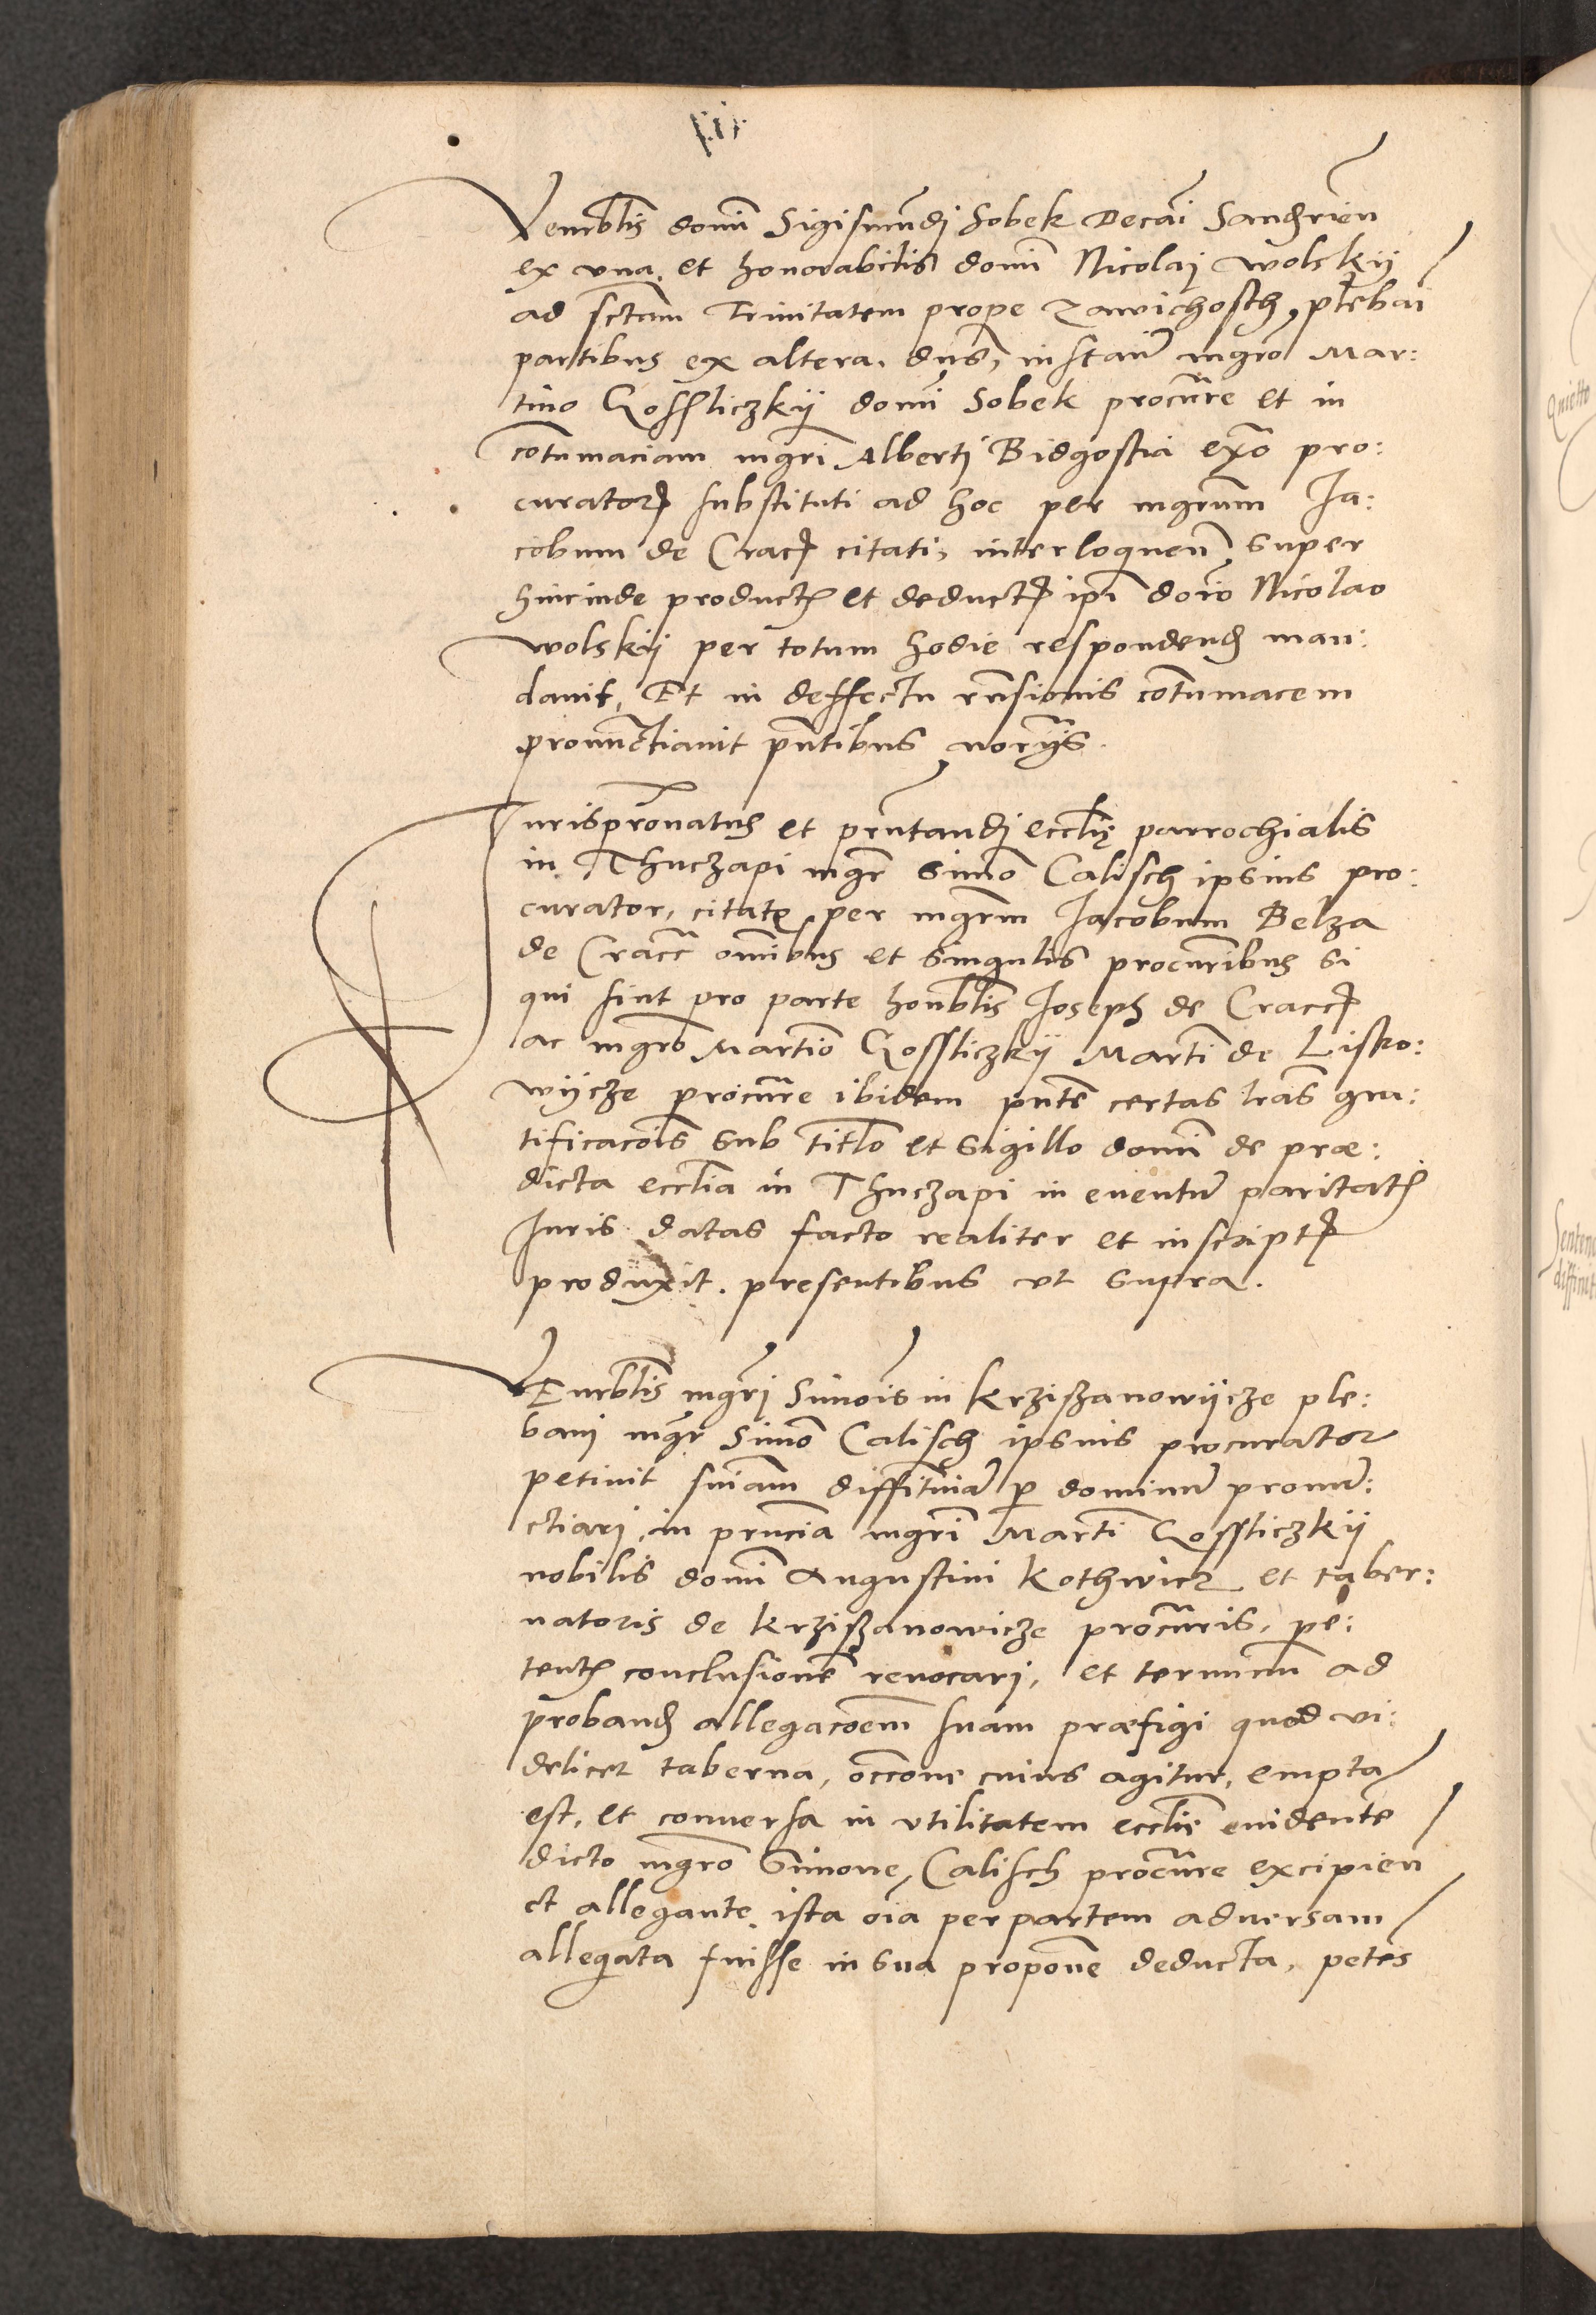 Venerblis domi Sigismundj Sobek Decāi Sandzrien
ex vna. et honorabilis domi Nicolaj Wolskÿ
ad sctam Trinitatem prope Zawichosth plebai
partibus ex altera. dns, instan mgro Mar:
tino Gosslÿczkÿ domi Sobek procure et in
cotumaciam mgri Alberti Bidgostia exo pro:
curator substituti ad hoc per mgrum Ja:
cobum de Crac citati, interloquen super
hincinde product et deduct ipi doio Nicolao
Wolskÿ per totum hodie respondend man:
dauit, Et in deffectu rnsionis cotumacem
pronuctiauit pntibus norÿs.
Jurispronatus et prntandj ecclię parrochialis
in Thuczapi mgr Simo Calisch ipsius pro:
curator, citat per mgrm Jacobum Belza
de Cracc omibus et singulis procuribus si
qui sint pro parte honblis Joseph de Cracc
ac mgro Martio Gosslÿczkÿ Marti de Lisko:
wÿcze procure ibidem pnte certas lras gra:
tificacois sub titlo et sigillo domi de præ:
dicta ecclia in Thuczapi in euentu paritat
Juris datas facto realiter et inscript
produxit. presentibus vt supra.
VEnrblis mgrj Simois in Krzißanowÿcze ple:
banj mgr Simo Calisch ipsius procurator
petiuit sniam diffitiuā p dominu pronu:
ctiarj, in prncia mgri Marti Gossliczkÿ
nobilis domi Augustini Kothwicz et taber:
natoris de Krzißanowicze procuris, pe:
tent conclusione reuocarj, et terminu ad
proband allegacoem suam præfigi quod vi:
delicet taberna, occone cuius agitur, empta
est, et conuersa in vtilitatem ecclie euidente
dicto mgro Simone, Calisch procure excipien
et allegante ista oia per partem aduersam
allegata fuisse in sua propone deducta, petes